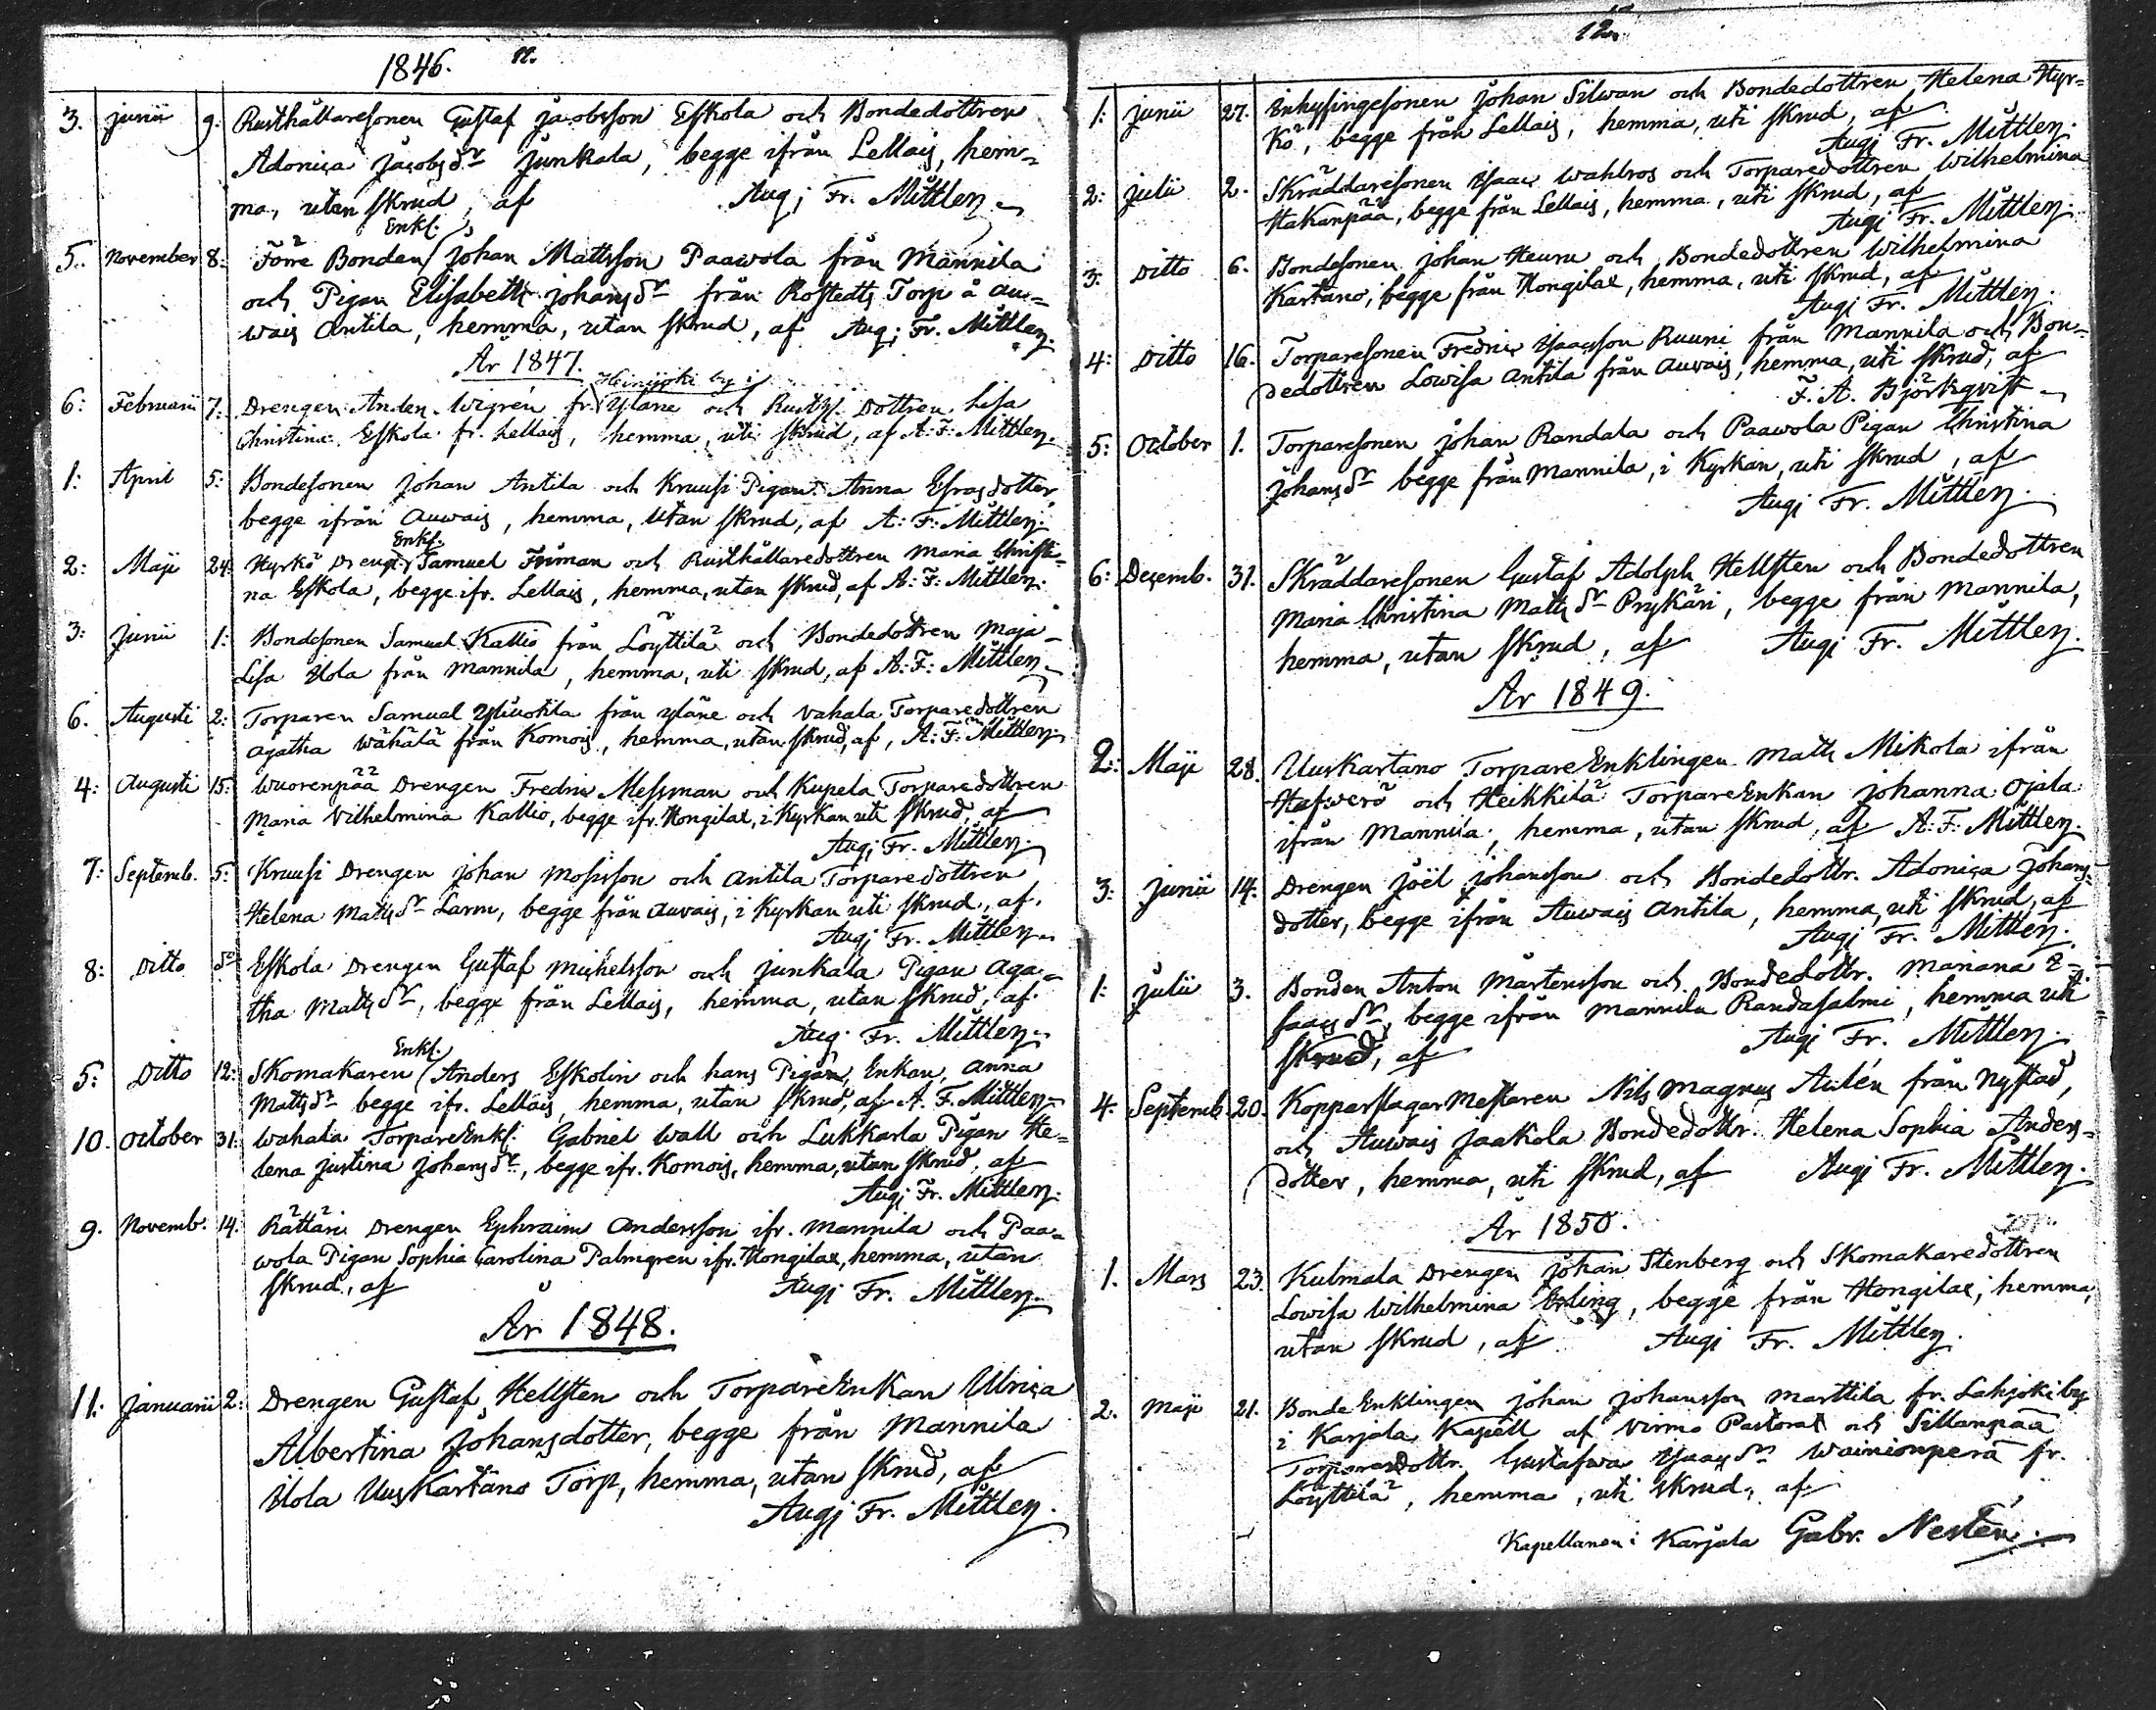 1846. 11.
3. junii 9. Rusthållaresonen Gustaf Jacobsson Eskola och Bondedottren
Adoniça Jacobsdr Junkala, begge ifrån Lellais, hem-
ma, utan skrud, af Aug; Fr. Mittler.
Enkl.
5. November 8. Förre Bonden Johan Mattsson Paawola från Mannila
och Pigan Elisabeth Johansdr från Rostedts Torp å Au-
wais Antila, hemma, utan skrud, af Aug; Fr. Mittler.
År 1847.
Heinijoki by i
6: Februarii 7: Drengen Anders Wigrén fr. Yläne och Rusth. Dottren Lisa
Christina Eskola fr. Lellais, hemma, uti skrud, af A: F: Mittler.
1: April 5: Bondesonen Johan Antila och Kruusi Pigan Anna Esrasdotter
begge ifrån Auwais, hemma, utan skrud, af A: F: Mittler.
Enkl.
2: Maji 24: Hyrkö Dreng. Samuel Friman och Rusthållaredottren Maria Christi-
na Eskola, begge ifr. Lellais, hemma, utan skrud, af A: F: Mittler.
3: Junii 1: Bondesonen Samuel Kallio från Löyttilä och Bondedottren Maja
Lisa Ylola från Mannila, hemma, uti skrud, af A: F: Mittler.
6. Augusti 2: Torparen Samuel från Yläne och Vahala Torparedottren
Agatha Wähälä från Komois, hemma, utan skrud, af, A: F: Mittler.
4: Augusti 15: Wuorenpää Drengen Fredric Messman och Kupela Torparedottren
Maria Vilhelmina Kallio, begge ifr. Hongilax, i Kyrkan uti skrud, af
Aug; Fr. Mittler.
7: Septemb. 5: Kruusi Drengen Johan Mosisson och Antila Torparedottren
Helena Mattsdr Larm, begge från Auvais, i Kyrkan uti skrud, af
Aug; Fr. Mittler.
8: Ditto do Eskola Drengen Gustaf Michelsson och Junkala Pigan Aga-
tha Mattsdr, begge från Lellais, hemma, utan skrud, af
Aug. Fr. Mittler.
Enkl.
5: Ditto 12: Skomakaren Anders Eskolin och hans Pigan, Enkan, Anna
Mattsdr begge ifr. Lellais, hemma, utan skrud, af A. F. Mittler.
10. October 31: Wahala TorpareEnkl. Gabriel Wall och Lukkarla Pigan He-
lena Justina Johansdr, begge ifr. Komois, hemma, utan skrud, af
Aug; Fr. Mittler.
9. Novemb. 14: Rättäri Drengen Ephraim Andersson ifr. Mannila och Paa-
wola Pigan Sophia Carolina Palmgren ifr. Hongilax, hemma, utan
skrud, af Aug; Fr. Mittler.
År 1848.
11: Januarii 2: Drengen Gustaf Hellsten och TorpareEnkan Ulriça
Albertina Johansdotter, begge från Mannila
Ylola Uuskartano Torp, hemma, utan skrud, af
Aug; Fr. Mittler.
12.
1: Junii 27. Inhysingesonen Johan Silwan och Bondedottren Helena Hyr-
kö, begge från Lellais, hemma, uti skrud, af
Aug; Fr. Mittler.
2: Julii 2. Skräddaresonen Isaac Wahlros och Torparedottren Wilhelmina
Hakanpää, begge från Lellais, hemma, uti skrud, af
Aug; Fr. Mittler.
3: Ditto 6. Bondesonen Johan Heuru och Bondedottren Wilhelmina
Kartano, begge från Hongilax, hemma, uti skrud, af
Aug; Fr. Mittler.
4: Ditto 16. Torparesonen Fredric Isaacsson Ruuni från Mannila och Bon-
dedottren Lowisa Antila från Auvais, hemma, uti skrud, af
F. A. Björkqvist
5: October 1. Torparesonen Johan Randala och Paawola Pigan Christina
Johansdr begge från Mannila, i Kyrkan, uti skrud, af
Aug; Fr. Mittler.
6: Decemb. 31. Skräddaresonen Gustaf Adolph Hellsten och Bondedottren
Maria Christina Mattsdr Prykäri, begge från Mannila,
hemma, utan skrud, af Aug; Fr. Mittler.
År 1849.
2: Maji 28. Uuskartano TorpareEnklingen Matts Mikola ifrån
Hafwerö och Heikkilä TorpareEnkan Johanna Ojala
ifrån Mannila, hemma, utan skrud, af A: F: Mittler.
3: Junii 14. Drengen Joël Johansson och Bondedottr. Adoniça Johans-
dotter, begge ifrån Auwais Antila, hemma, uti skrud, af
Aug; Fr. Mittler.
1: Julii 3. Bonden Anton Mårtensson och Bondedottr. Mariana I-
saacsdr, begge ifrån Mannila Randasalmi, hemma uti
skrud, af Aug; Fr. Mittler.
4. Septemb. 20. KopparslagarMestaren Nils Magnus Aulén från Nystad,
och Auwais Jaakola Bondedottr. Helena Sophia Anders-
dotter, hemma, uti skrud, af Aug; Fr. Mittler.
År 1850.
1. Mars 23. Kulmala Drengen Johan Stenberg och Skomakaredottren
Lowisa Wilhelmina begge från Hongilax, hemma,
utan skrud, af Aug; Fr. Mittler.
2. Maji 21. Bonde Enklingen Johan Johansson Marttila fr. Lahjoki by
i Karjala Kapell af Virmo Pastorat och Sillanpää
Torparedottr. Gustafwa Isaacsdr Wainionperä fr.
Löyttilä, hemma, uti skrud, af
Kapellanen i Karjala Gabr. Nestén.